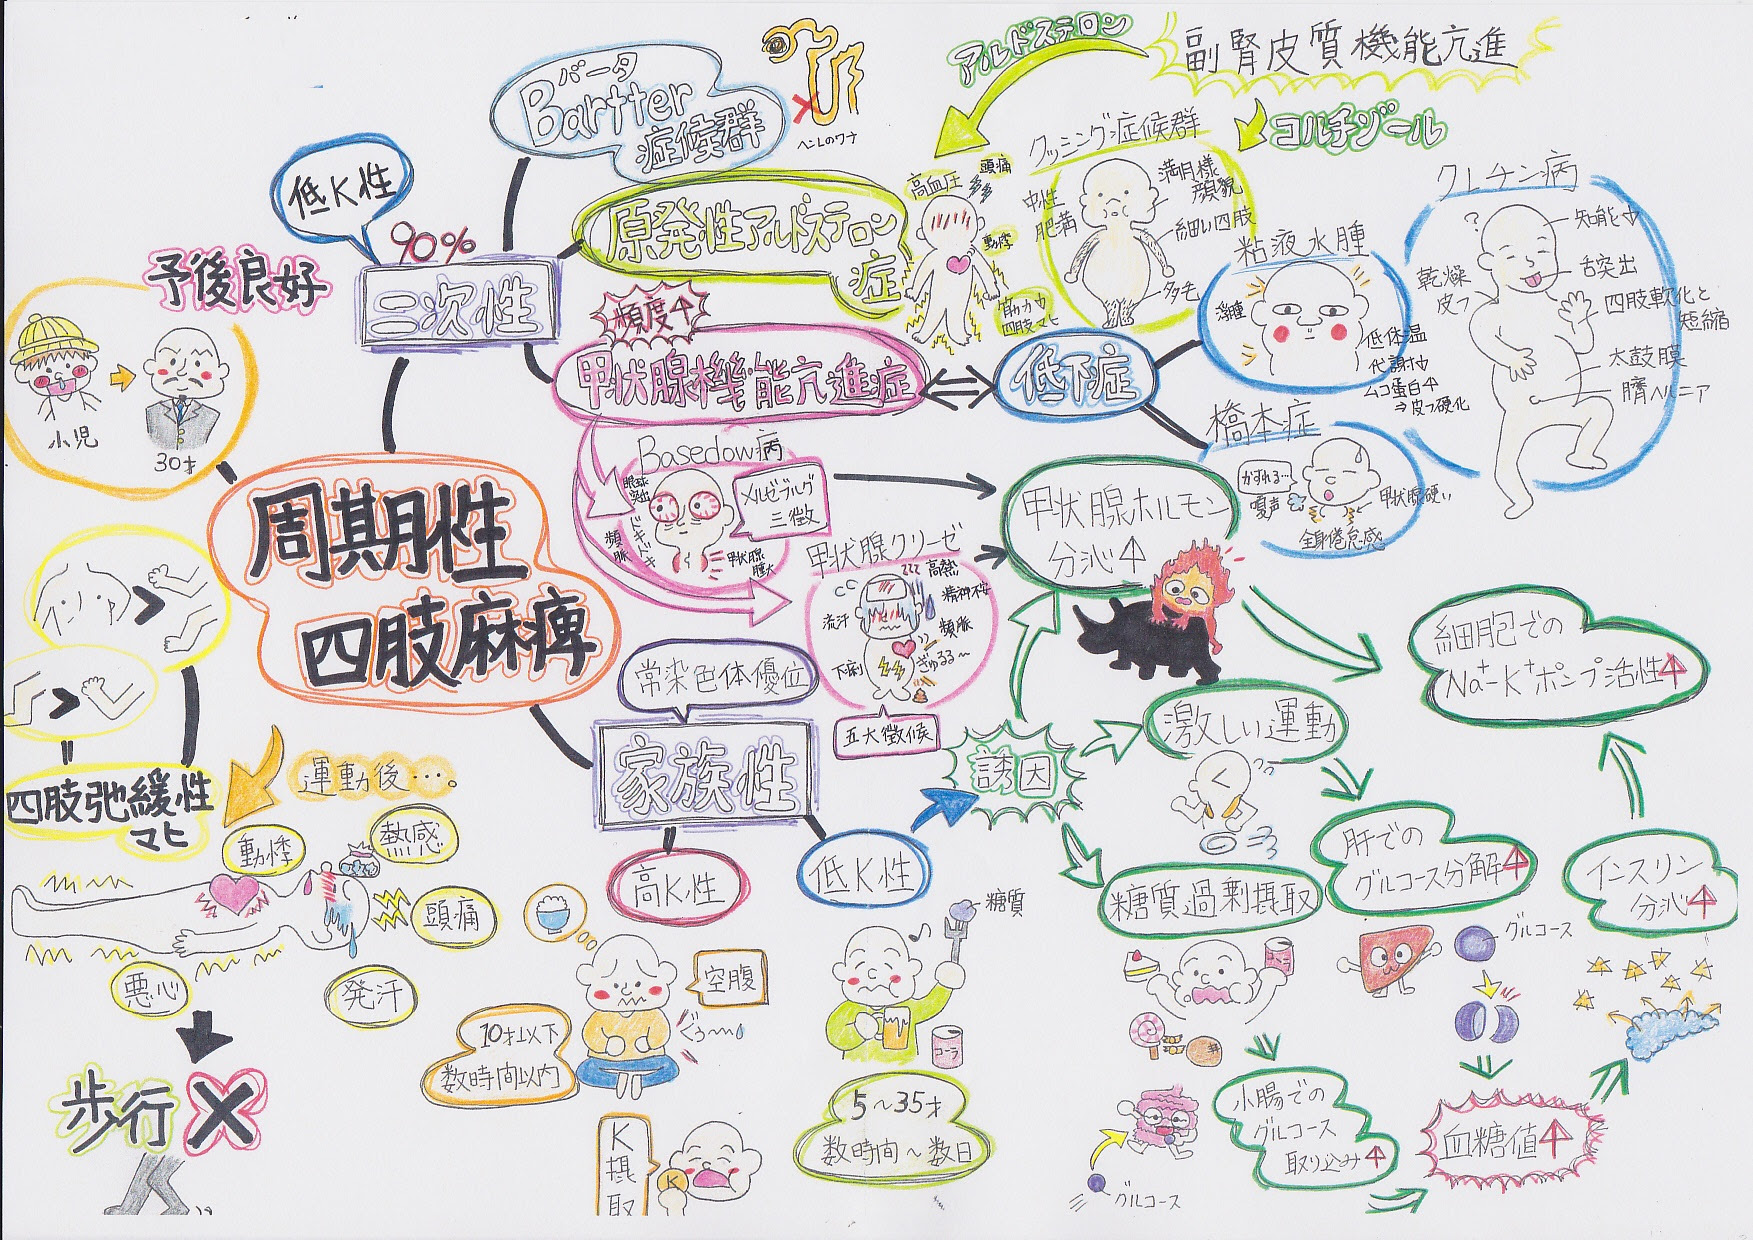 周期性
四肢麻痺
予後良好
小児
30才
低K性
90%
二次性
バータ
Bartter
症候群
ヘンレのワナ
原発性アルドステロン
症
アルドステロン
副腎皮質機能亢進
コルチゾール
高血圧
頭痛
動悸
筋力↓
四肢マヒ
クッシング症候群
中性
肥満
満月様
顔貌
細い四肢
多毛
頻度↑
甲状腺機能亢進症
低下症
粘液水腫
浮腫
低体温
代謝↓
ムコ蛋白↑
⇒皮フ硬化
クレチン病
?
知能↓
舌突出
乾燥
皮フ
四肢軟化と
短縮
太鼓腹
臍ヘルニア
橋本症
かすれる…
嗄声
甲状腺硬い
全身倦怠感
Basedow病
眼球
突出
メルゼブルグ
三徴
ドキドキ
頻脈
甲状腺
腫大
甲状腺クリーゼ
高熱
精神不安
流汗
頻脈
下痢
ぎゅるる〜
五大徴候
甲状腺ホルモン
分泌↑
細胞での
Na⁺-K⁺ポンプ活性↑
常染色体優位
家族性
高K性
低K性
誘因
激しい運動
肝での
グルコース分解↑
グルコース
インスリン
分泌↑
糖質過剰摂取
小腸での
グルコース
取り込み↑
グルコース
血糖値↑
糖質
コーラ
5〜35才
数時間〜数日
空腹
ぐぅ〜
10才以下
数時間以内
K
摂
取
K
>
>
四肢弛緩性
マヒ
運動後…。
動悸
熱感
頭痛
発汗
悪心
歩行×